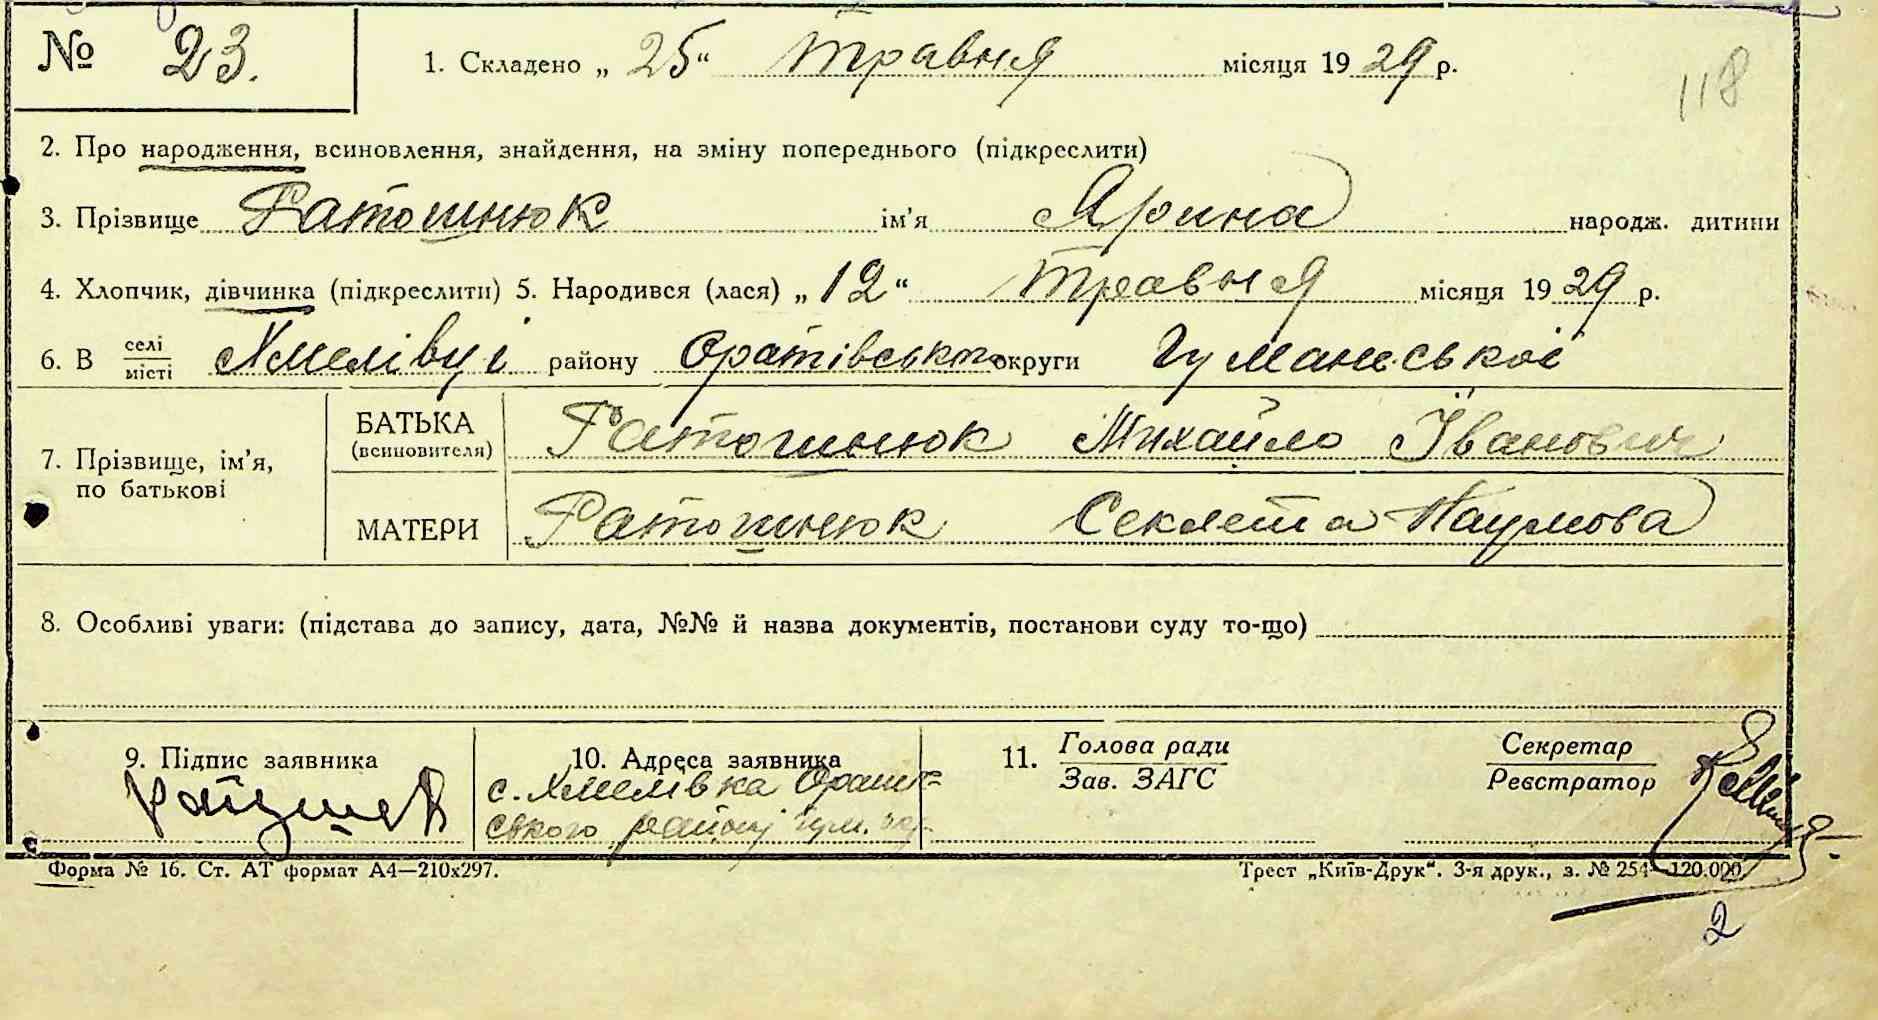 № 23.
1. Складено „25“ травня місяця 1929 р.
118
2. Про народження, всиновлення, знайдення, на зміну попереднього (підкреслити)
3. Прізвище Ратошнюк ім'я Ярина народж. дитини
4. Хлопчик, дівчинка (підкреслити) 5. Народився (лася) „12“ травня місяця 1929 р.
6. В селі місті Хмелівці району Оратівського округи Гуманської
7. Прізвище, ім'я, по батькові
БАТЬКА (всиновителя) Ратошнюк Михайло Іванович
МАТЕРИ Ратошнюк Секлета Наумова
8. Особливі уваги: (підстава до запису, дата, №№ й назва документів, постанови суду то-що)
9. Підпис заявника
10. Адреса заявника
с. Хмелівка Оратів-
ського району гум.
11. Голова ради
Зав. ЗАГС
Секретар
Реєстратор
Форма № 16. Ст. АТ формат А4—210х297.
Трест „Київ-Друк“. 3-я друк., з. № 254—120.000.
2